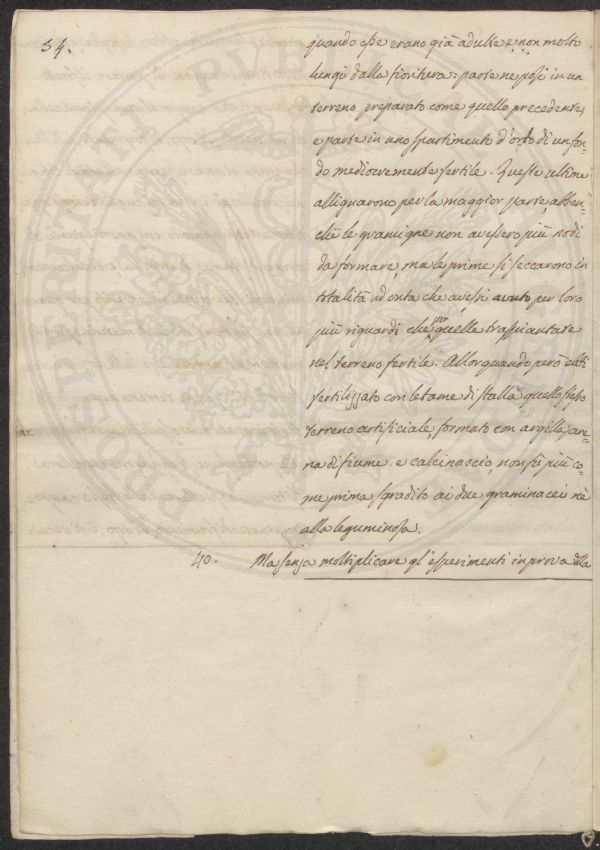 34.
quando esse erano già adulte e non molto
lungi dalla fioritura: parte ne posi in un
terreno preparato come quello precedente,
e parte in uno spartimento d'orto di un fon-
do mediocremente fertile. Queste ultime
allignarono per la maggior parte, abben-
chè le gramigne non avessero più nodi
da formare, ma le prime si seccarono in
totalità ad onta che avessi avuto per loro
più riguardi che per quelle trapiantate
nel terreno fertile. Allorquando però ebbi
fertilizzato con letame di stalla quello stesso
terreno artificiale, formato con argilla are-
na di fiume e calcinaccio non fù più co-
me prima sgradito ai due graminacei nè
alla leguminosa.
40. Ma senza moltiplicare gl'esperimenti in prova della
PROSPERITATI PVBLICAE